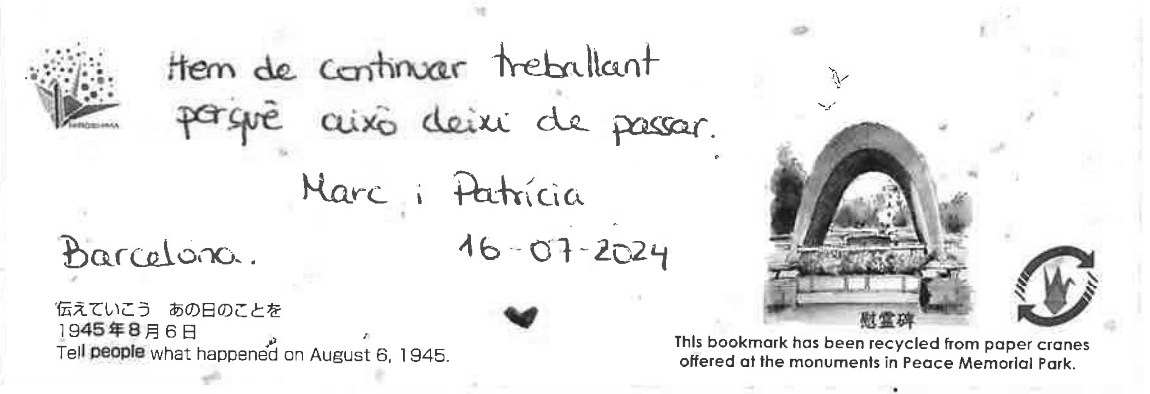 Hem de continuar treballant
perquè això deixi de passar.
Marc i Patrícia
Barcelona. 16-07-2024
伝えていこう あの日のことを
1945年8月6日
Tell people what happened on August 6, 1945.
HIROSHIMA
慰霊碑
This bookmark has been recycled from paper cranes
offered at the monuments in Peace Memorial Park.